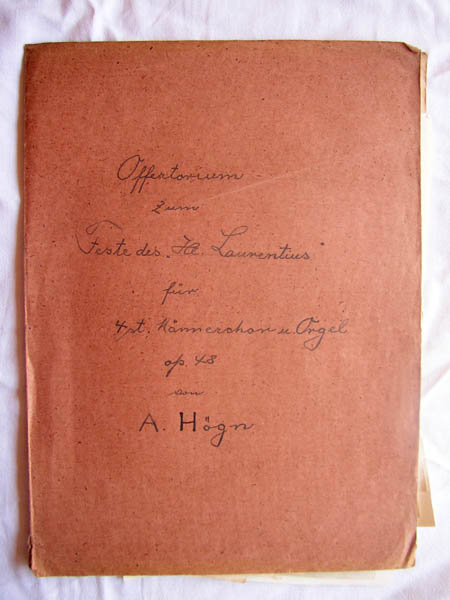 Offertorium
zum
Feste des „Hl. Laurentius"
für
4st. Männerchor u. Orgel
op. 48
von
A. Högn